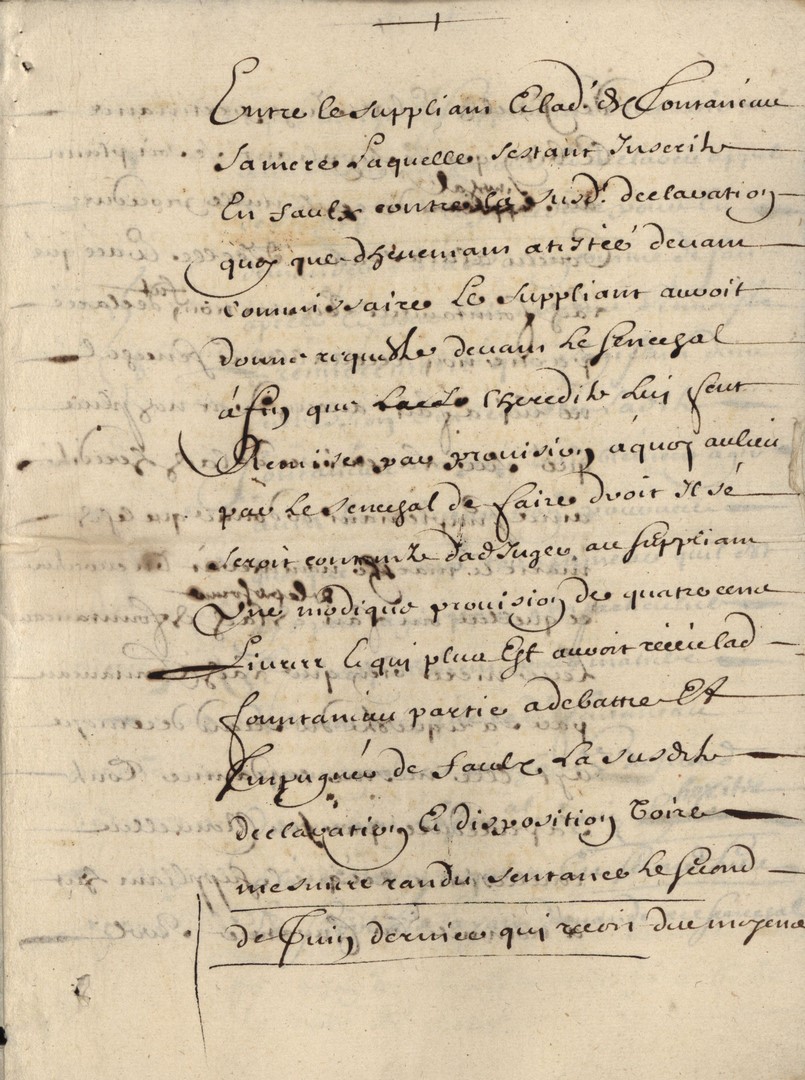 Entre le suppliant et lad.e de Fontanieu
sa mere Laquelle sestant Inscrite
En faulx contre la susd.e declaration
quoy que dhuement atistée devant
Commissaire Le suppliant auroit
donne requeste devant Le senechal
a fin que Lheredite Luy feut
Remise par provision a quoy au lieu
par Le senechal de faire droit Il se
seroit contante dadjuger au suppliant
Une modique provision de quatre cens
Livres et qui plus Est auroit receu lad
fountanieu partie a debattre Et
Impugner de faulx La susdite
declaration Et disposition Voire
mesme randu sentance Le second
de Juin dernier qui recoit des moyens